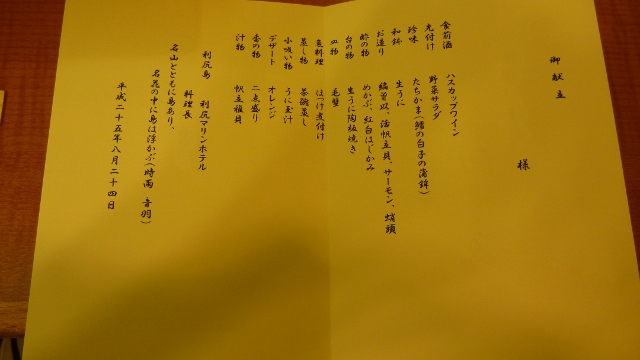 御献立
様
食前酒　ハスカップワイン
先付け　野菜サラダ
珍味　たちかま（鱈の白子の蒲鉾）
和鉢　生うに
お造り　縞曽以、活帆立貝、サーモン、蛸頭
酢の物　めかぶ、紅白はじかみ
台の物　生うに陶板焼き
皿物　毛蟹
煮料理　ほっけ煮付け
蒸し物　茶碗蒸し
小吸い物　うに玉汁
デザート　オレンジ
香の物　二点盛り
汁物　帆立稚貝
利尻島　利尻マリンホテル
料理長
名山とともに島あり、
名花の中に島は浮かぶ（時雨　音羽）
平成二十五年八月二十四日